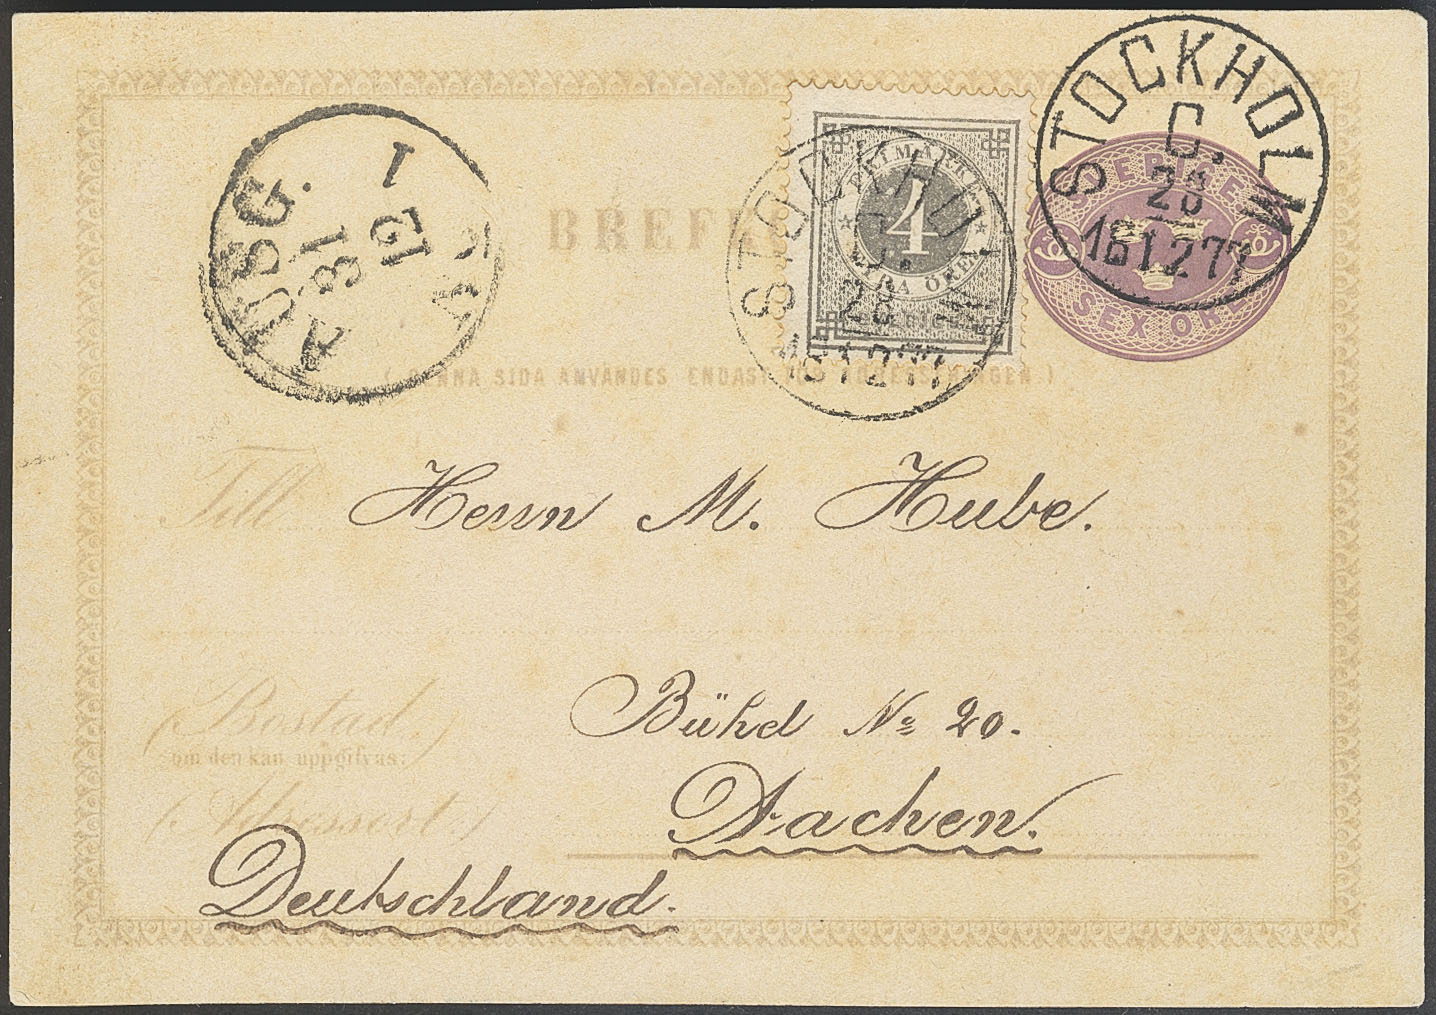 STOCKHOLM
C.
28
18 12 77
SVERIGE
SEX ÖRE
STOCKHOLM
28
1812 77
FRIMÄRKE
4
FYRA ÖRE
SVERIGE
AUSG.
1
12
31
BREFK
( DENNA SIDA ANVÄNDES ENDAST FÖR ADRESSERINGEN )
Till Herrn M. Hube.
Bühd No 20.
(Bostad,
om den kan uppgifvas:)
(Adressort.)
Aachen.
Deutschland.